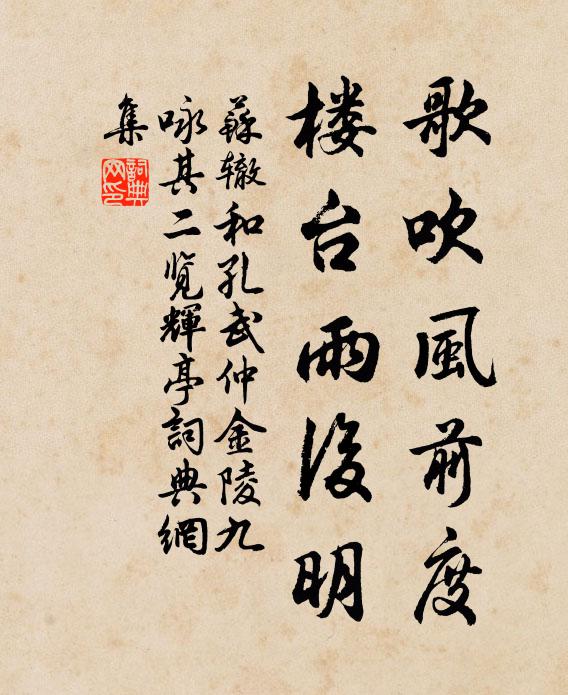 歌吹風前度
楼台雨後明
蘇辙和孔武仲金陵九
咏其二览輝亭詞典網
集
詞典網印